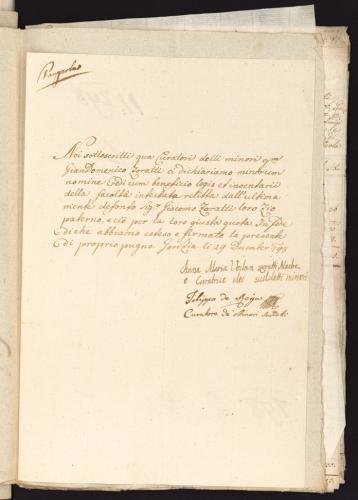 Noi sottoscritti qua Curatori delli minori qm
GianDomenico Zoratti ci dichiariamo minorum
nomine Eredi cum benefizio legis et inventarii
della facoltà intestata relitta dall'ultima
mente defonto Sigr Giacomo Zoratti loro Zio
paterno, e ciò per la loro giusta quota. In fede
di che abbiamo esteso e fermato la presente
di proprio pugno. Gorizia li 29 Decembre
Anna Maria Vedova Zoratti Madre
e Curatrice dei suddetti minori
Filippo de
Curatore de' Minori Sudetti